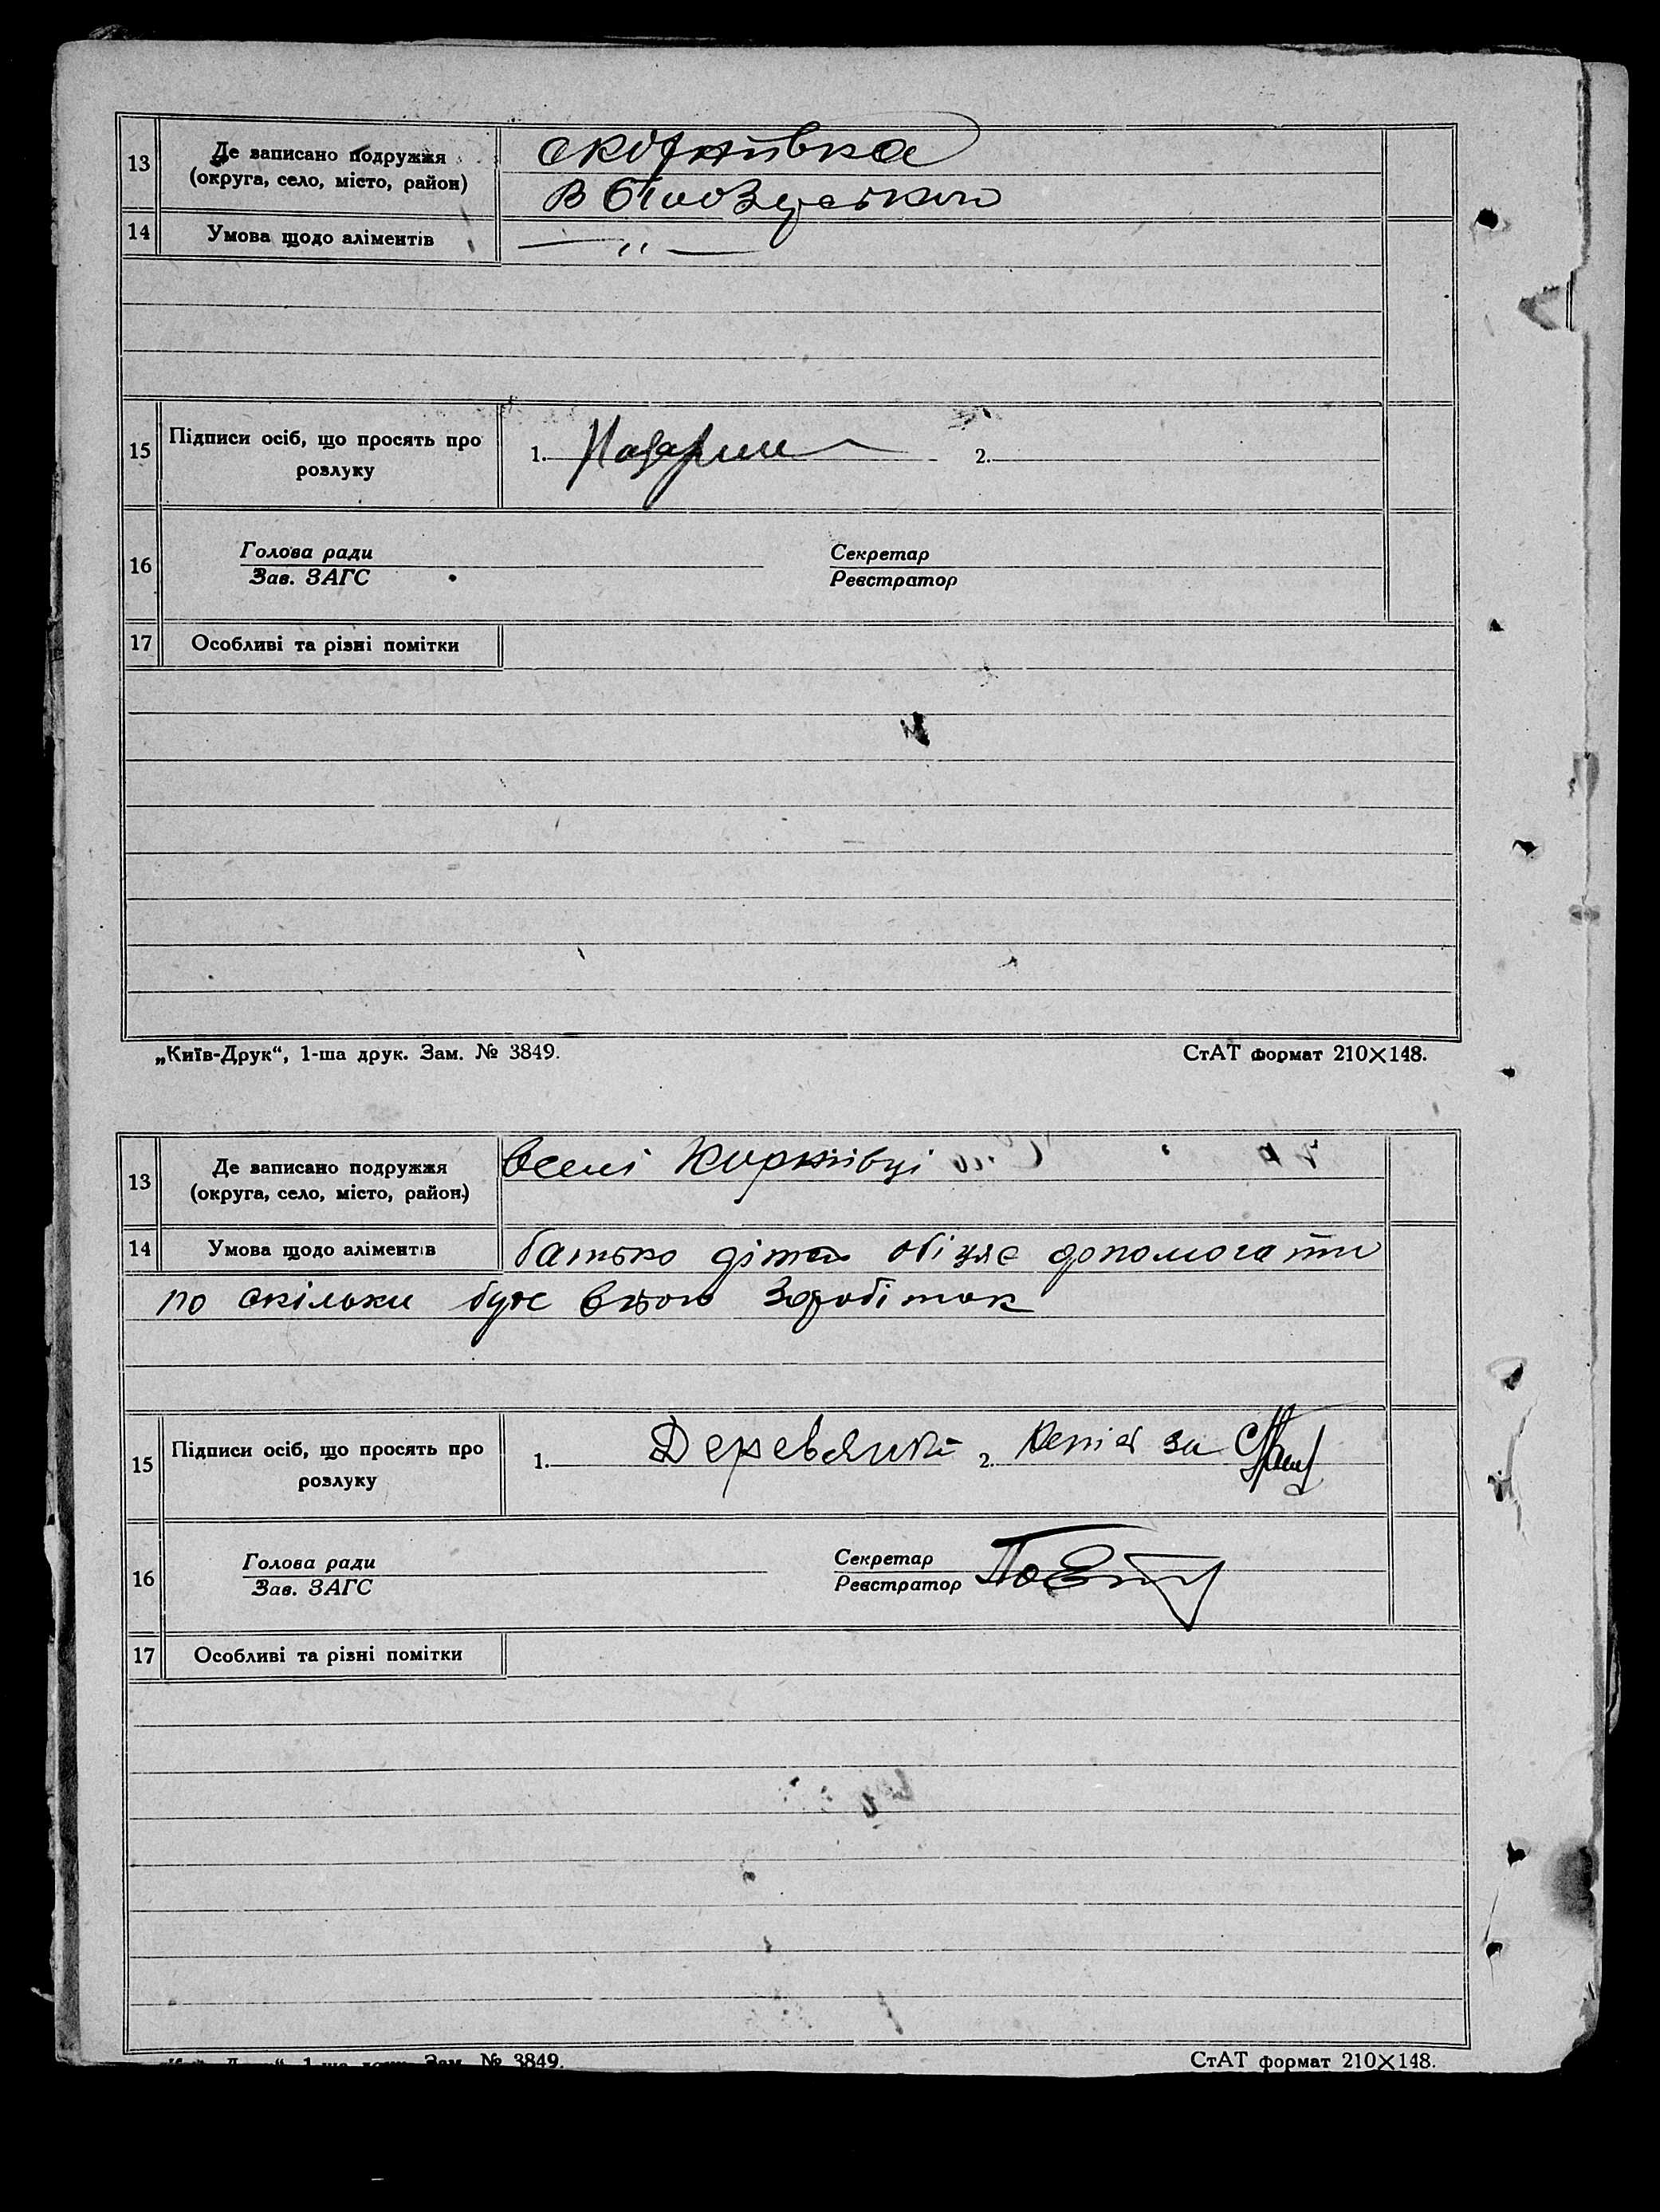 13
Де записано подружжя
(округа, село, місто, район)
14
Умова щодо аліментів
— „ —
15
Підписи осіб, що просять про
розлуку
1.
2.
16
Голова ради
Зав. ЗАГС
Секретар
Реєстратор
17
Особливі та різні помітки
„Київ-Друк“, 1-ша друк. Зам. № 3849.
СтАТ формат 210×148.
13
Де записано подружжя
(округа, село, місто, район)
вселі Корніївці
14
Умова щодо аліментів
батько обіцяє допомогати
по скільки буде заробіток
15
Підписи осіб, що просять про
розлуку
1. Деревянка
2. за
16
Голова ради
Зав. ЗАГС
Секретар
Реєстратор
17
Особливі та різні помітки
Зам. № 3849.
СтАТ формат 210×148.